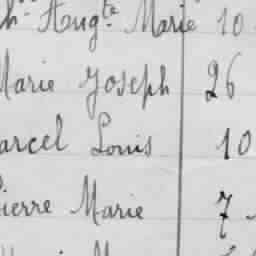 h. Aug.te Marie 10
Marie Joseph 26
arcel Louis 10
Pierre Marie 7